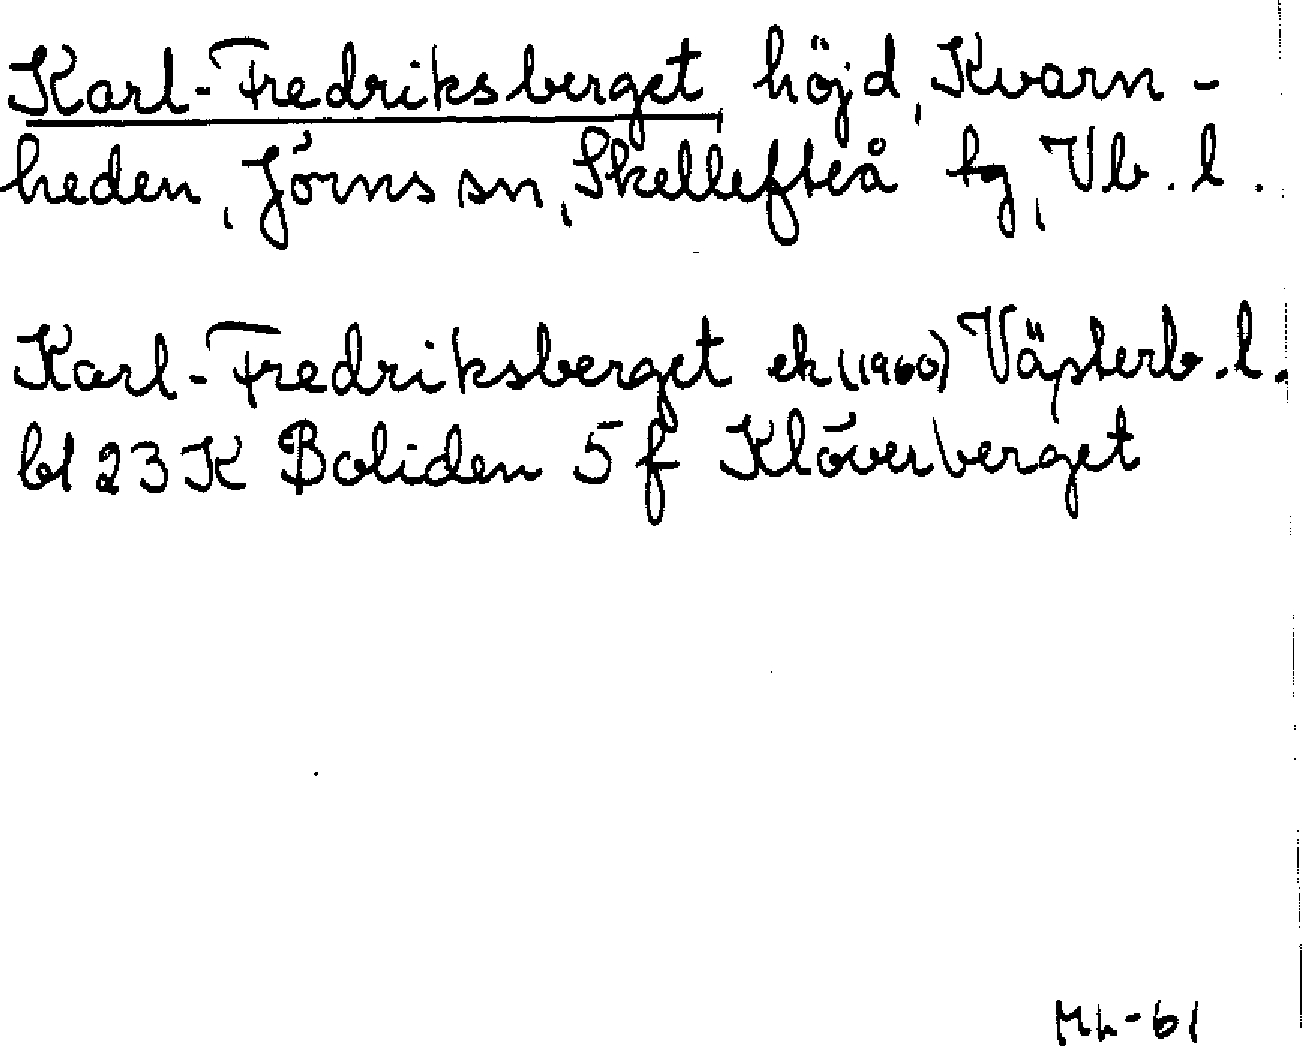 Karl-Fredriksberget, höjd, Kvarn-
heden, Jörns sn, Skellefteå tg, Vb. l.
Karl-Fredriksberget ek (1960) Västerb. l.
bl 23 K Boliden 5 f Klöverberget
Mh-61